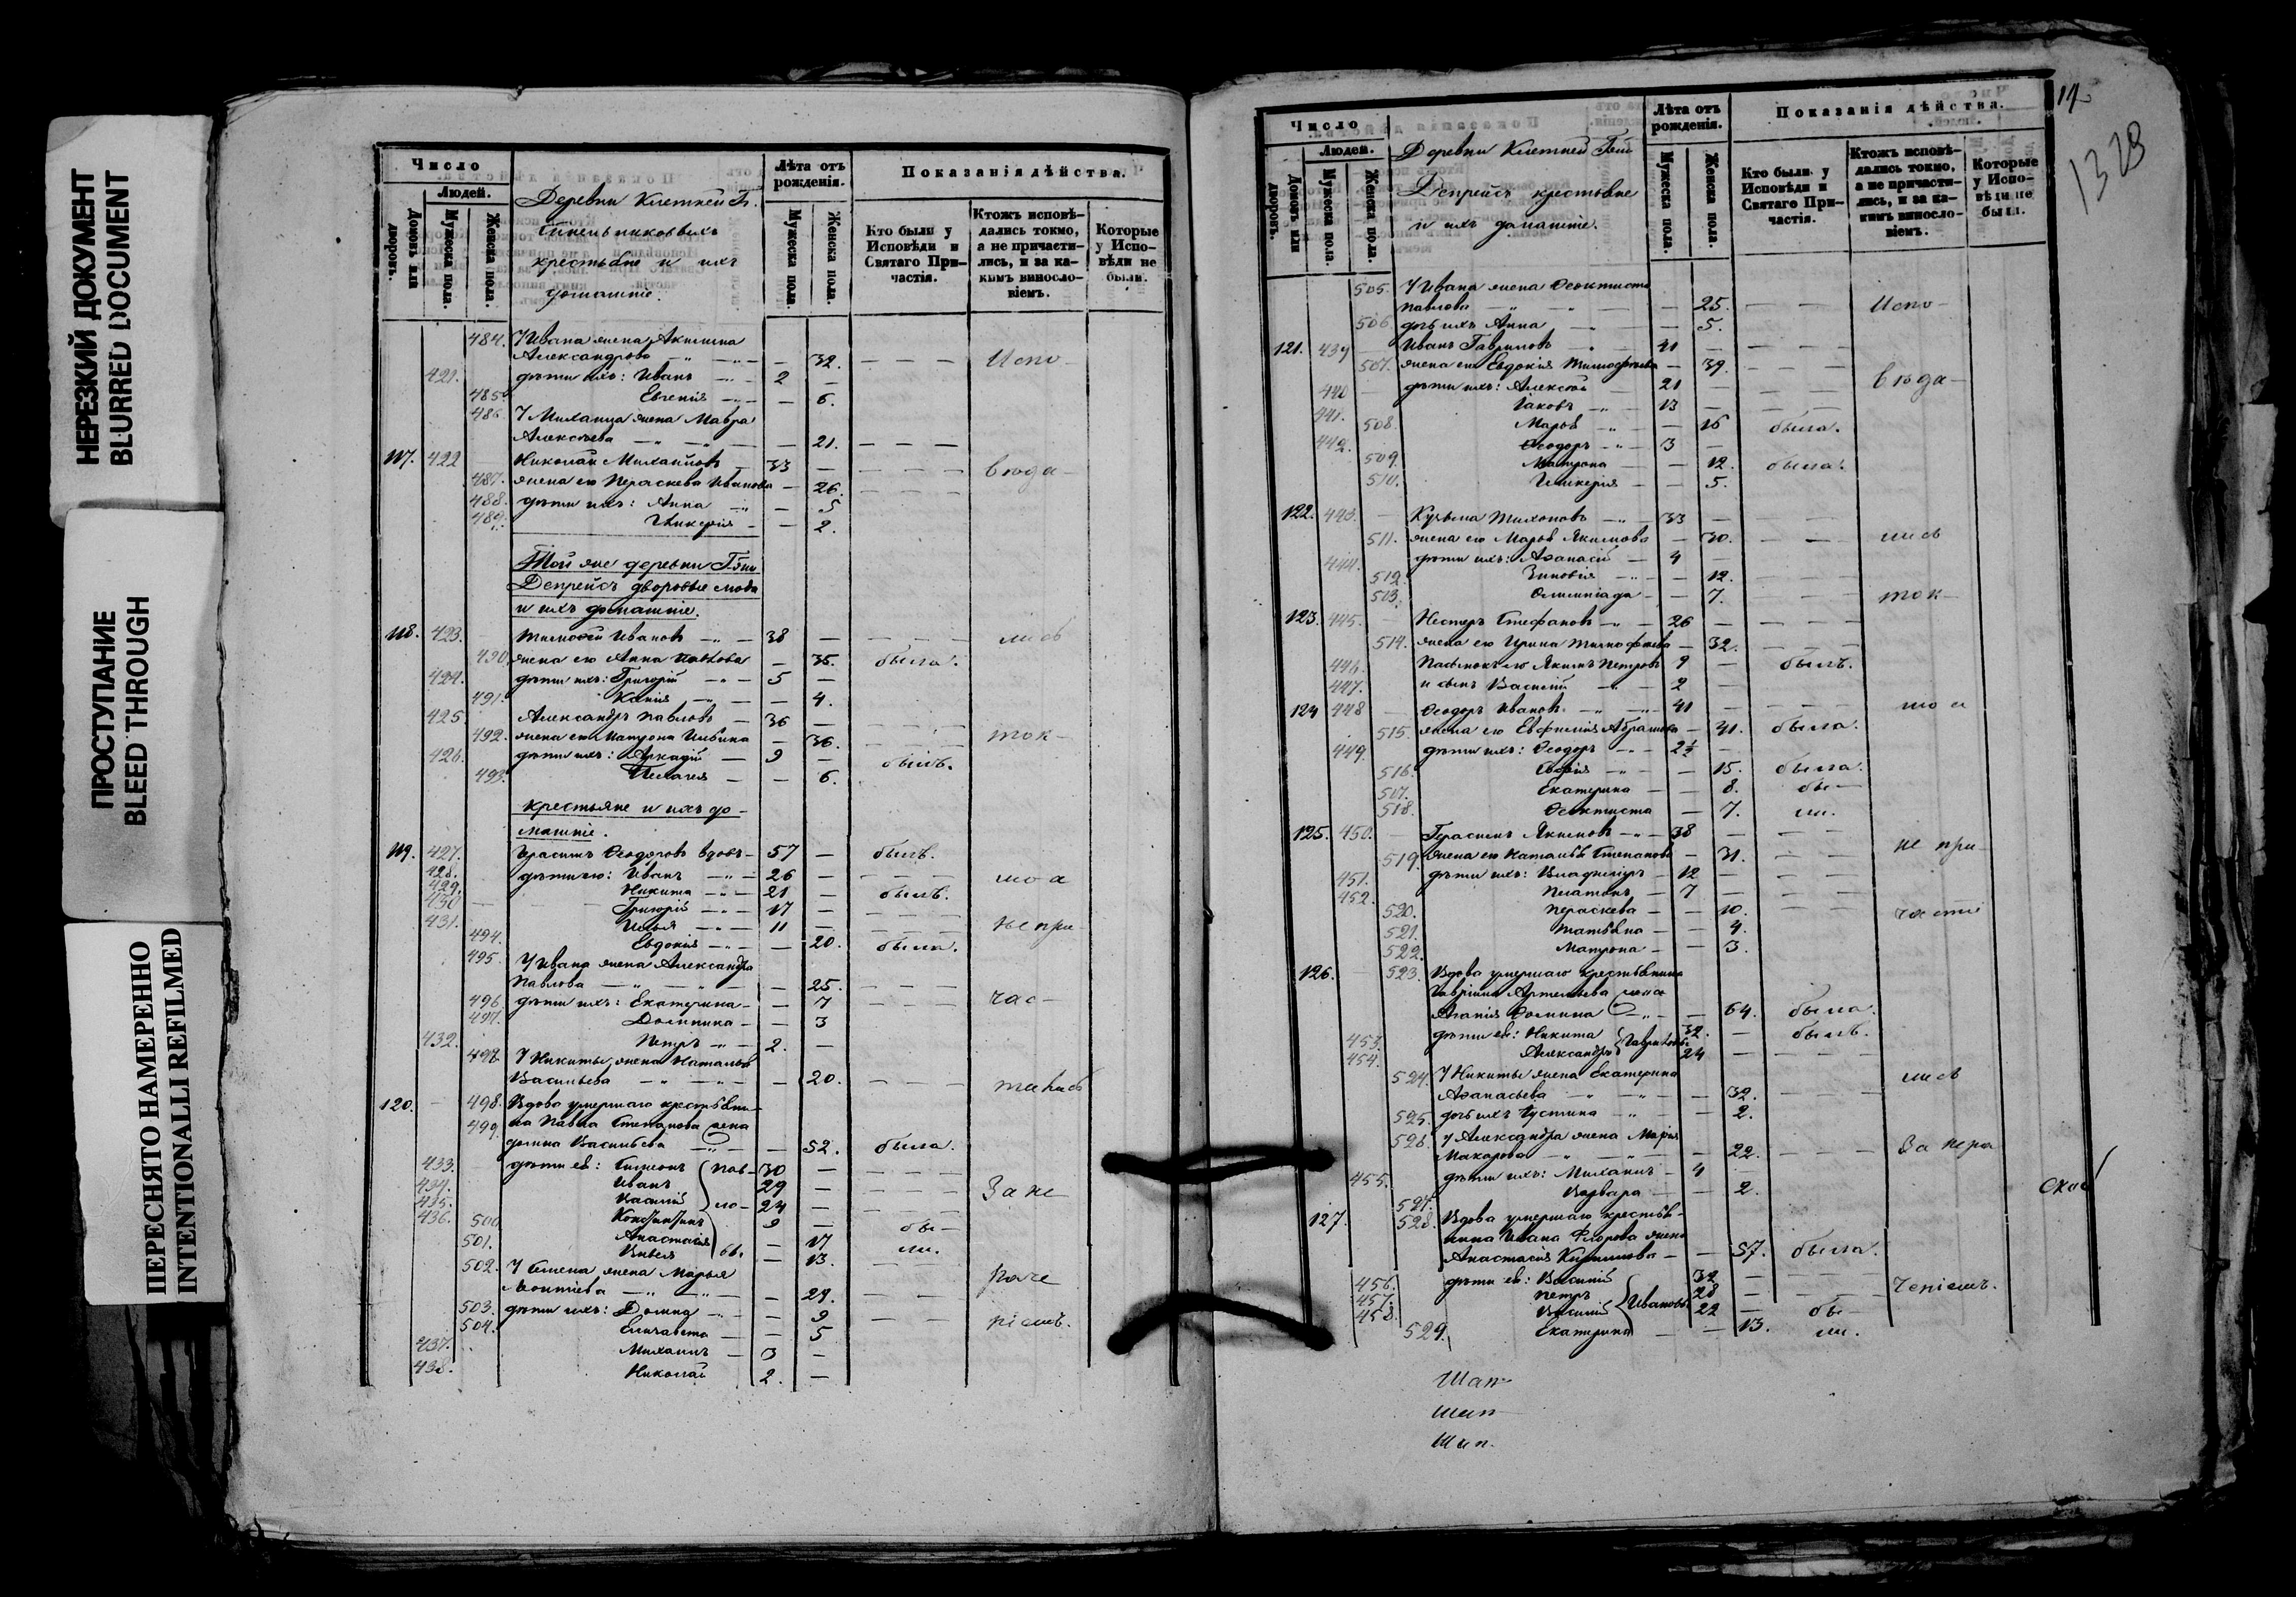 НЕРЕЗКИЙ ДОКУМЕНТ
BLURRED DOCUMENT
ПРОСТУПАНИЕ
BLEED THROUGH
ПЕРЕСНЯТО НАМЕРЕННО
INTENTIONALLI REFILMED
Число
Людей.
Домовъ или дворовъ.
Мужеска пола.
Женска пола.
Деревни Клетней Г.
крестьяне и ихъ
домашніе.
Лѣта отъ рожденія.
Мужеска пола.
Женска пола.
Показанія дѣйства.
Кто были у Исповѣди и Святаго Причастія.
Ктожъ исповѣдались токмо, а не причастились, и за какимъ винословіемъ.
Которые у Исповѣди не были.
484. У Ивана жена Акилина
Александрова 32. Испо-
421. дѣти ихъ: Иванъ 2
485. Евгенія 6.
486. У Михаила жена Мавра
Алексѣева 21.
117. 422 Николай Михайловъ 33 вгода-
487. жена его Параскева Иванова 26.
488. дѣти ихъ: Анна 5
489. Гликерія 2.
Той же деревни Г-жи
Депрейсъ дворовые люди
и ихъ домашніе.
118. 423. Тимофей Ивановъ 38 лись
490. жена его Анна Павлова 35. была.
424. дѣти ихъ: Григорій 5
491. Ксенія 4.
425. Александръ Павловъ 36
492. жена его Матрона Ильина 36. ток-
426. дѣти ихъ: Аркадій 9 былъ.
493. Пелагея 6.
крестьяне и ихъ до-
машніе.
119. 427. Герасимъ Ѳеодоровъ вдовъ 57 былъ.
428. дѣти его: Иванъ 26 мо а
429. Никита 21 былъ.
430 Григорій 17
431. Илья 11 не при-
494. Евдокія 20. была.
495. У Ивана жена Александра
Павлова 25.
496. дѣти ихъ: Екатерина 7 час-
497. Домникa 3
432. Петръ 2.
497. У Никиты жена Наталья
Васильева 20. тились
120. 498. Вдова умершаго крестьяни-
499. на Павла Степанова жена
Домна Васильева 52. была.
433. дѣти ея: Симеонъ Пав- 30
434. Иванъ 29 За не-
435. Василій ло- 24
436. 500 Константинъ 9 бы-
501. Анастасія вы. 17 ли.
13.
502. У Семена жена Марья
Леонтіева 29.
503. дѣти ихъ: Домна 9
504. Елизавета 5 ніемъ.
437. Михаилъ 3
438. Николай 2.
14
1328
Число
Людей.
Домовъ или дворовъ.
Мужеска пола.
Женска пола.
Деревни Клетней Г-жи
Депрейсъ крестьяне
и ихъ домашніе.
Лѣта отъ рожденія.
Мужеска пола.
Женска пола.
Показанія дѣйства.
Кто были у Исповѣди и Святаго Причастія.
Ктожъ исповѣдались токмо, а не причастились, и за какимъ винословіемъ.
Которые у Исповѣди не были.
505. У Ивана жена Ѳеоктиста
Павлова 25. Испо-
506 дочь ихъ Анна 5.
121. 439 Иванъ Гавриловъ 41
507. жена его Евдокія Тимофѣева 39. вгода-
440 дѣти ихъ: Алексѣй 21
Іаковъ 13
441. 508. Марѳа 16 была.
442. Ѳеодоръ 3
509. Матрона 12. была.
510. Гликерія 5.
122. 443. Кузьма Тихоновъ 33
511. жена его Марѳа Якимова 30. лись
444. дѣти ихъ: Аѳанасій 4
512. Зиновія 12.
513. Олимпіада 7. ток-
123. 445. Несторъ Стефановъ 26
514. жена его Ирина Тимофѣева 32.
446. Пасынокъ его Якимъ Петровъ 9 былъ.
447. и сынъ Василій 2
124 448 Ѳеодоръ Ивановъ 41 мо а
515. жена его Евфимія Абрамова 41. была.
449. дѣти ихъ: Ѳеодоръ 2½
516. Софія 15. была.
517. Екатерина 8. бы-
518. Ѳеоктиста 7. ли.
125. 450. Герасимъ Якимовъ 38
519. жена его Наталья Степанова 31. не при-
451. дѣти ихъ: Владиміръ 12
452. Платонъ 7
520. Параскева 10. части
521. Татьяна 4.
522. Матрона 3.
126. 523. Вдова умершаго крестьянина
Гавріила Артемьева жена
Агапія Фомина 64. была.
453. дѣти ея: Никита Гавриловы 32. былъ.
454. Александръ 24
524. У Никиты жена Екатерина лись
Аѳанасьева 32.
525. дочь ихъ Іустина 2.
526. У Александра жена Марія
Макарова 22. За нера-
455. дѣти ихъ: Михаилъ 4
527. Варвара 2.
127. 528. Вдова умершаго крестья-
нина Ивана Флорова жена
Анастасія Кирилова 57. была.
456. дѣти ея: Василій 32 ченіемъ.
457. Петръ 28
458. Василій Ивановы 22 бы-
529. Екатерина 13. ли.